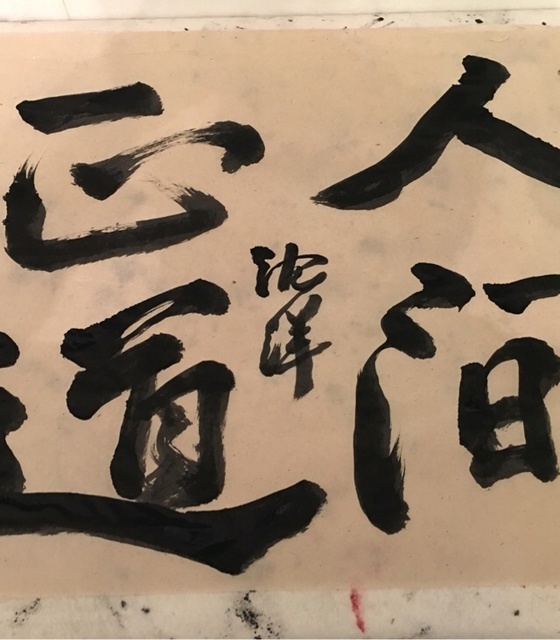 人间
正道
沈洋